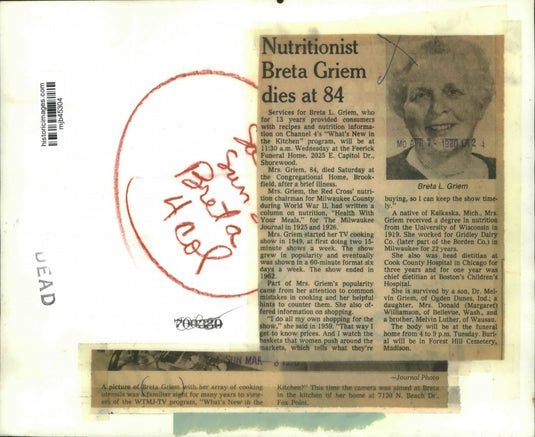 Nutritionist
Breta Griem
dies at 84
Services for Breta L. Griem, who
for 13 years provided consumers
with recipes and nutrition information
on Channel 4's "What's New in
the Kitchen" program, will be at
11:30 a.m. Wednesday at the Feerick
Funeral Home, 2025 E. Capitol Dr.,
Shorewood.
Mrs. Griem, 84, died Saturday at
the Congregational Home, Brook-
field, after a brief illness.
Mrs. Griem, the Red Cross' nutri-
tion chairman for Milwaukee County
during World War II, had written a
column on nutrition, "Health With
Your Meals," for The Milwaukee
Journal in 1925 and 1926.
Mrs. Griem started her TV cooking
show in 1949, at first doing two 15-
minute shows a week. The show
grew in popularity and eventually
was shown in a 60-minute format six
days a week. The show ended in
1962.
Part of Mrs. Griem's popularity
came from her attention to common
mistakes in cooking and her helpful
hints to counter them. She also of-
fered information on shopping.
"I do all my own shopping for the
show," she said in 1959. "That way I
get to know prices. And I watch the
baskets that women push around the
markets, which tells what they're
Breta L. Griem
buying, so I can keep the show time-
ly."
A native of Kalkaska, Mich., Mrs.
Griem received a degree in nutrition
from the University of Wisconsin in
1919. She worked for Gridley Dairy
Co. (later part of the Borden Co.) in
Milwaukee for 22 years.
She also was head dietitian at
Cook County Hospital in Chicago for
three years and for one year was
chief dietitian at Boston's Children's
Hospital.
She is survived by a son, Dr. Mel-
vin Griem, of Ogden Dunes, Ind.; a
daughter, Mrs. Donald (Margaret)
Williamson, of Bellevue, Wash., and
a brother, Melvin Luther, of Wausau.
The body will be at the funeral
home from 4 to 9 p.m. Tuesday. Burial
will be in Forest Hill Cemetery,
Madison.
historicimages.com
mjb45304
sun
Breta
4 col
DEAD
700380
SUN MAR
—Journal Photo
A picture of Breta Griem with her array of cooking
utensils was a familiar sight for many years to view-
ers of the WTMJ-TV program, "What's New in the
Kitchen?" This time the camera was aimed at Breta
in the kitchen of her home at 7120 N. Beach Dr.,
Fox Point.